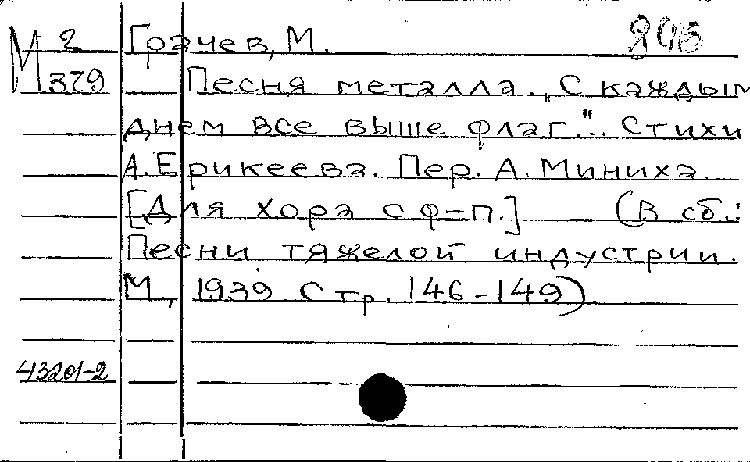 М 2 Грачев, М. 205
М 379 Песня металла. „С каждым
днем все выше флаг.". Стихи
А. Ерикеева. Пер. А. Миниха.
[Для хора с ф=п.] (В сб.:
Песни тяжелой индустрии.
М, 1939. Стр. 146-149)
43201-2